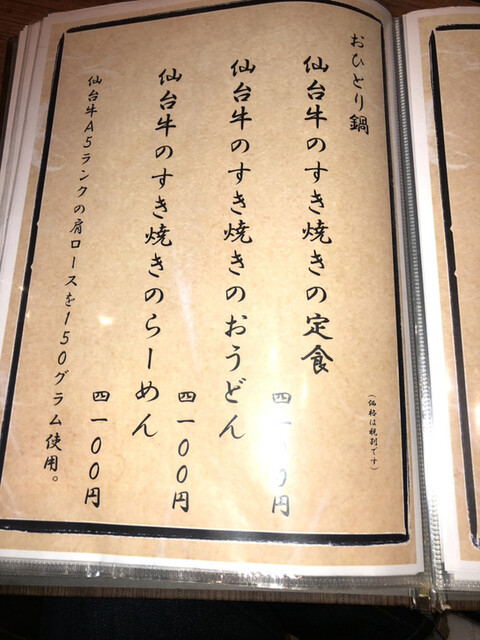 おひとり鍋
(価格は税別です)
仙台牛のすき焼きの定食
四一〇〇円
仙台牛のすき焼きのおうどん
四一〇〇円
仙台牛のすき焼きのらーめん
四一〇〇円
仙台牛A5ランクの肩ロースを150グラム使用。